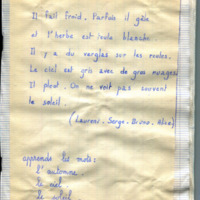 Il fait froid. Parfois il gèle
et l'herbe est toute blanche.
Il y a du verglas sur les routes.
Le ciel est gris avec de gros nuages.
Il pleut. On ne voit pas souvent
le soleil.
(Laurent, Serge, Bruno,
apprends les mots:
l'automne
le ciel
le soleil